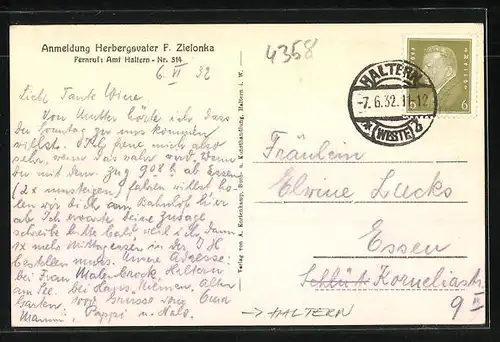 Anmeldung Herbergsvater F. Zielonka
Fernruf: Amt Haltern - Nr. 514
6. VI 32
Lieb. Tante Wine.
Von Mutter hörte ich, dass
du Sonntag zu uns kommen
willst. Ich freue mich also
sehr, wenn das wahr wird. Wenn
du mit dem Zug 908 ab Essen
(2x umsteigen) fahren willst ho-
len wir dich am Bahnhof hier
ab. Ich erwarte deine Zusage
schreibe bitte bald weil ich dann
1x mehr Mittagessen in der J H
bestellen muss. Unsere Adresse:
bei Frau Malenbrock, Haltern
am See. bei Haus Niemen, Alter
Garten. 1000 Grüsse von
Mammi, Pappi u.
Verlag von A. Kortenkamp, Buch- u. Kunsthandlung, Haltern i. W.
4358
HALTERN
-7.6.32.11-12
(WESTF)
6 6
Fräulein
Elwine Lucks
Essen
Korneliastr.
9 II
→ HALTERN